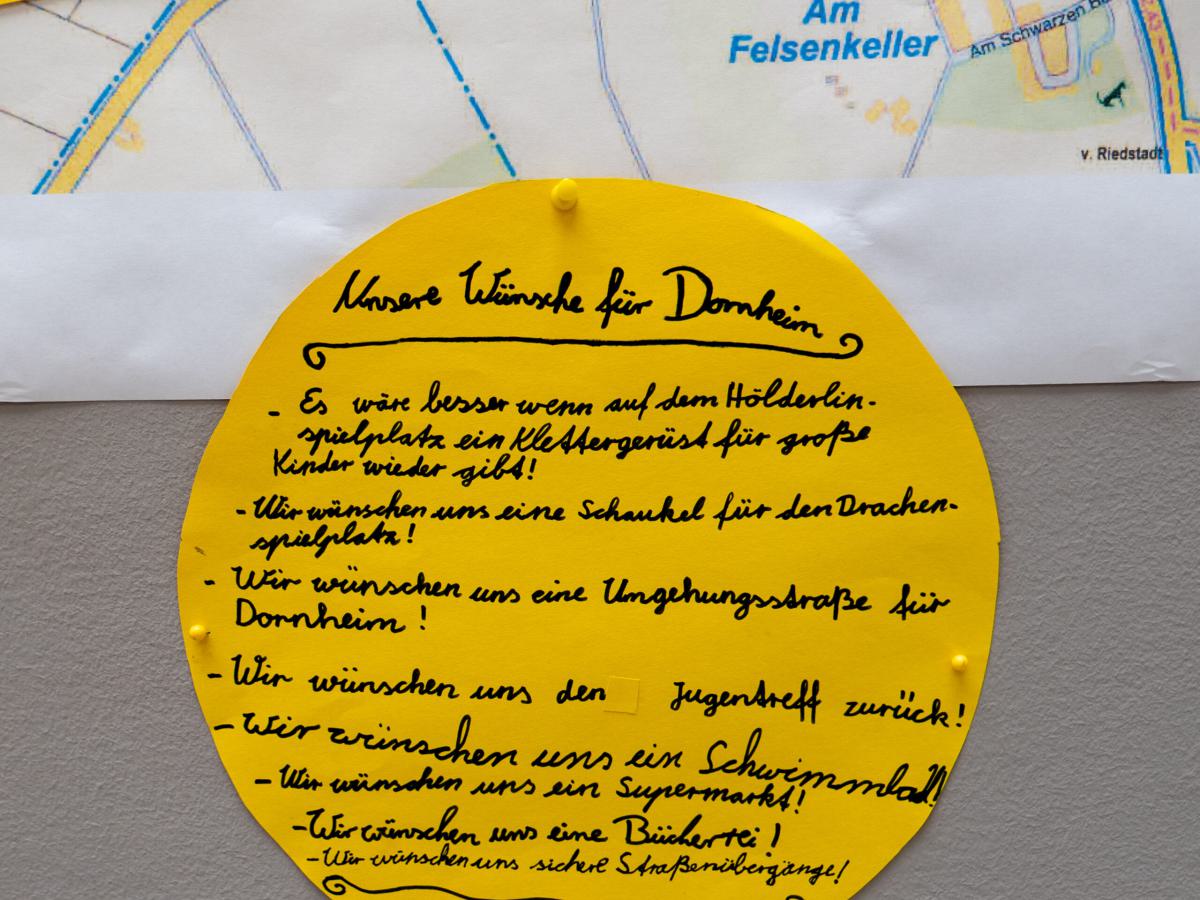 Am
Felsenkeller
Am Schwarzen
v. Riedstadt
Unsere Wünsche für Dornheim
- Es wäre besser wenn auf dem Hölderlin-
spielplatz ein Klettergerüst für große
Kinder wieder gibt!
- Wir wünschen uns eine Schaukel für den Drachen-
spielplatz!
- Wir wünschen uns eine Umgehungsstraße für
Dornheim!
- Wir wünschen uns den Jugentreff zurück!
- Wir wünschen uns ein Schwimmbad!
- Wir wünschen uns ein Supermarkt!
- Wir wünschen uns eine Bücherrei!
- Wir wünschen uns sichere Straßenübergänge!